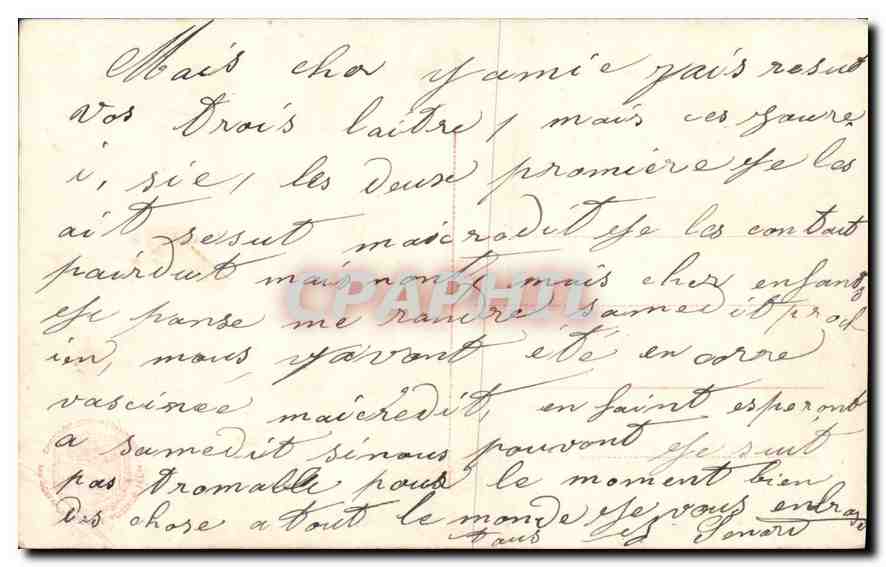 Mais cher yamie yais resut
vos trois laitre, mais ces youre
i, sie, les deux promiére ye les
ait sesut maicredit ye les contout
pairdut mais nont, mais cher enfants
ye panse me randre samedit proch
ien, nous yavont été encorre
vascinée maicredit, en faint esperont
a samedit sinous pouvont ye suit
pas tromable pour le moment bien
des chose a tout le monde ye vous enbrase
tous
CPAPHIL